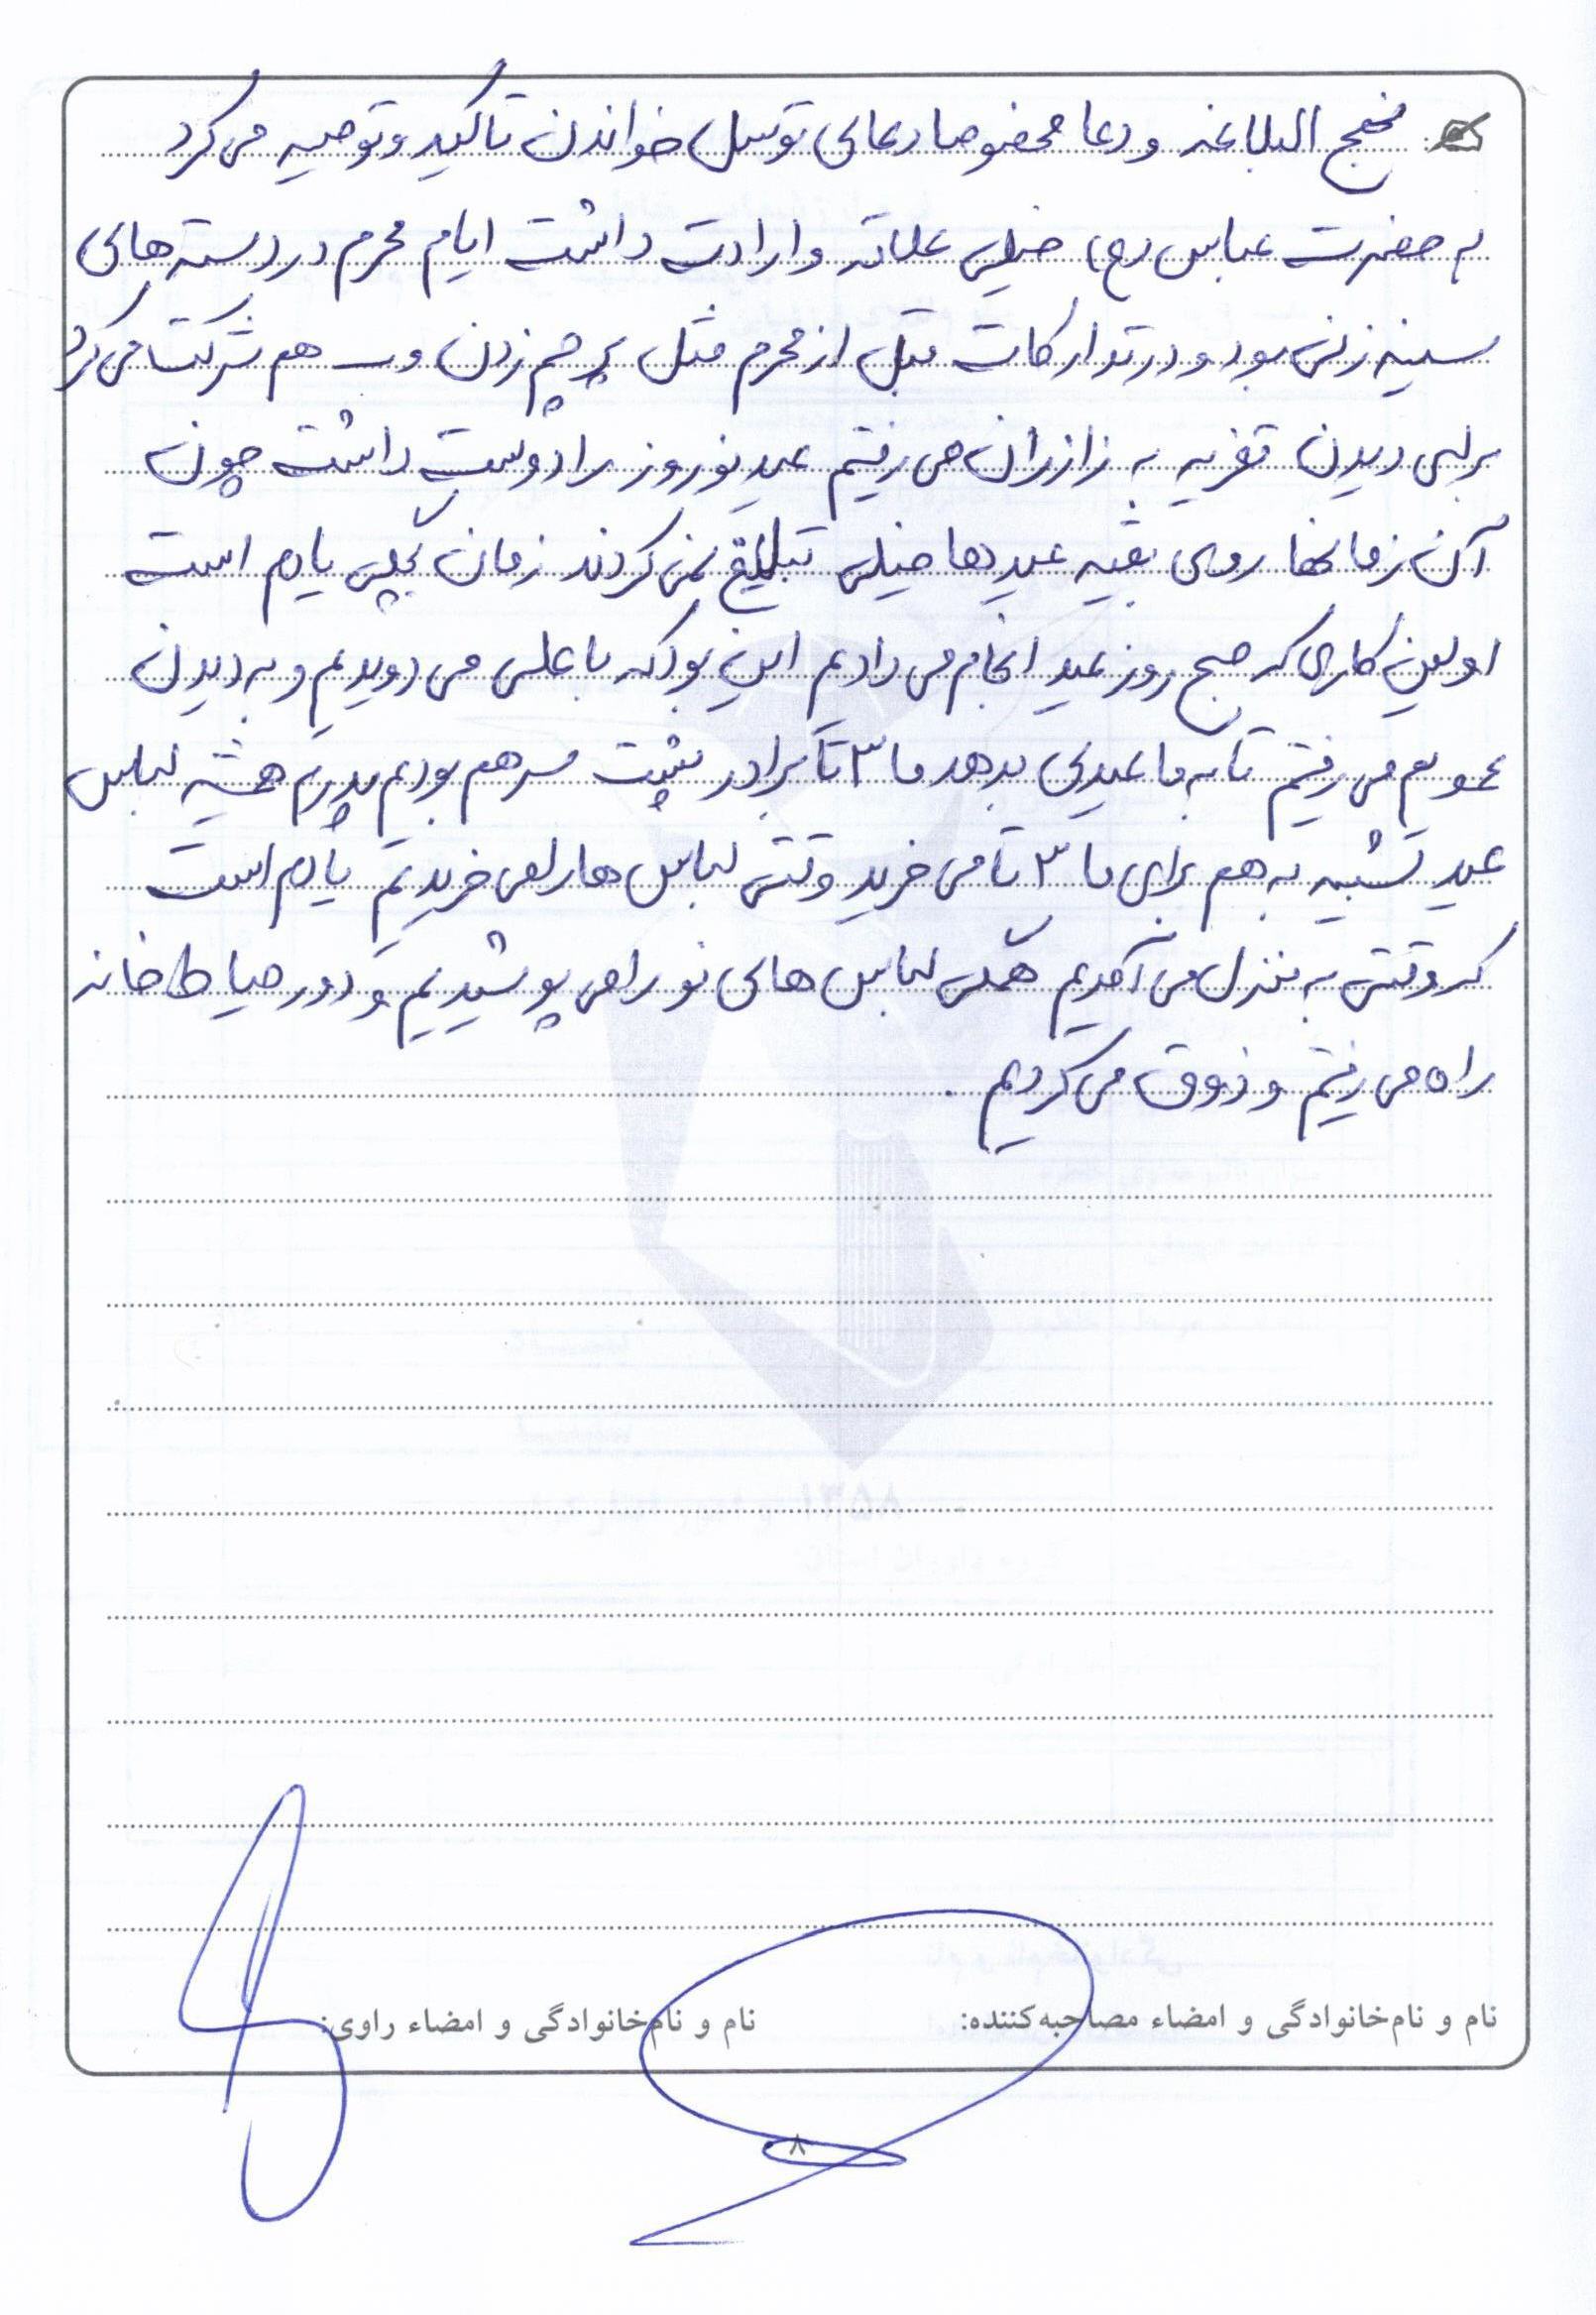 نهج البلاغه و دعا مخصوصا دعای توسل خواندن تاکید و توصیه می کرد
به حضرت عباس (ع) خیلی علاقه و ارادت داشت ایام محرم در دسته های
سینه زنی بود و در تدارکات قبل از محرم مثل پرچم زدن و ... هم شرکت می کرد
برای دیدن تعزیه به زازران می رفتیم عید نوروز را دوست داشت چون
آن زمانها روی بقیه عیدها خیلی تبلیغ نمی کردند زمان بچگی یادم است
اولین کاری که صبح روز عید انجام می دادیم این بود که با علی می دویدیم و به دیدن
عمویم می رفتیم تا به ما عیدی بدهد ما ۳ تا برادر پشت سر هم بودیم پدرم همیشه لباس
عید شبیه به هم برای ما ۳ تا می خرید وقتی لباس ها را می خریدیم یادم است
که وقتی به منزل می آمدیم همگی لباس های نو را می پوشیدیم و دور حیاط خانه
راه می رفتیم و ذوق می کردیم .
نام و نام‌خانوادگی و امضاء مصاحبه‌کننده: نام و نام‌خانوادگی و امضاء راوی:
۸